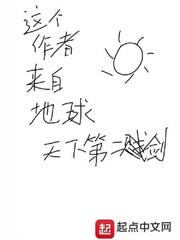 这个
作者
来自
地球
天下第二剑
起点中文网